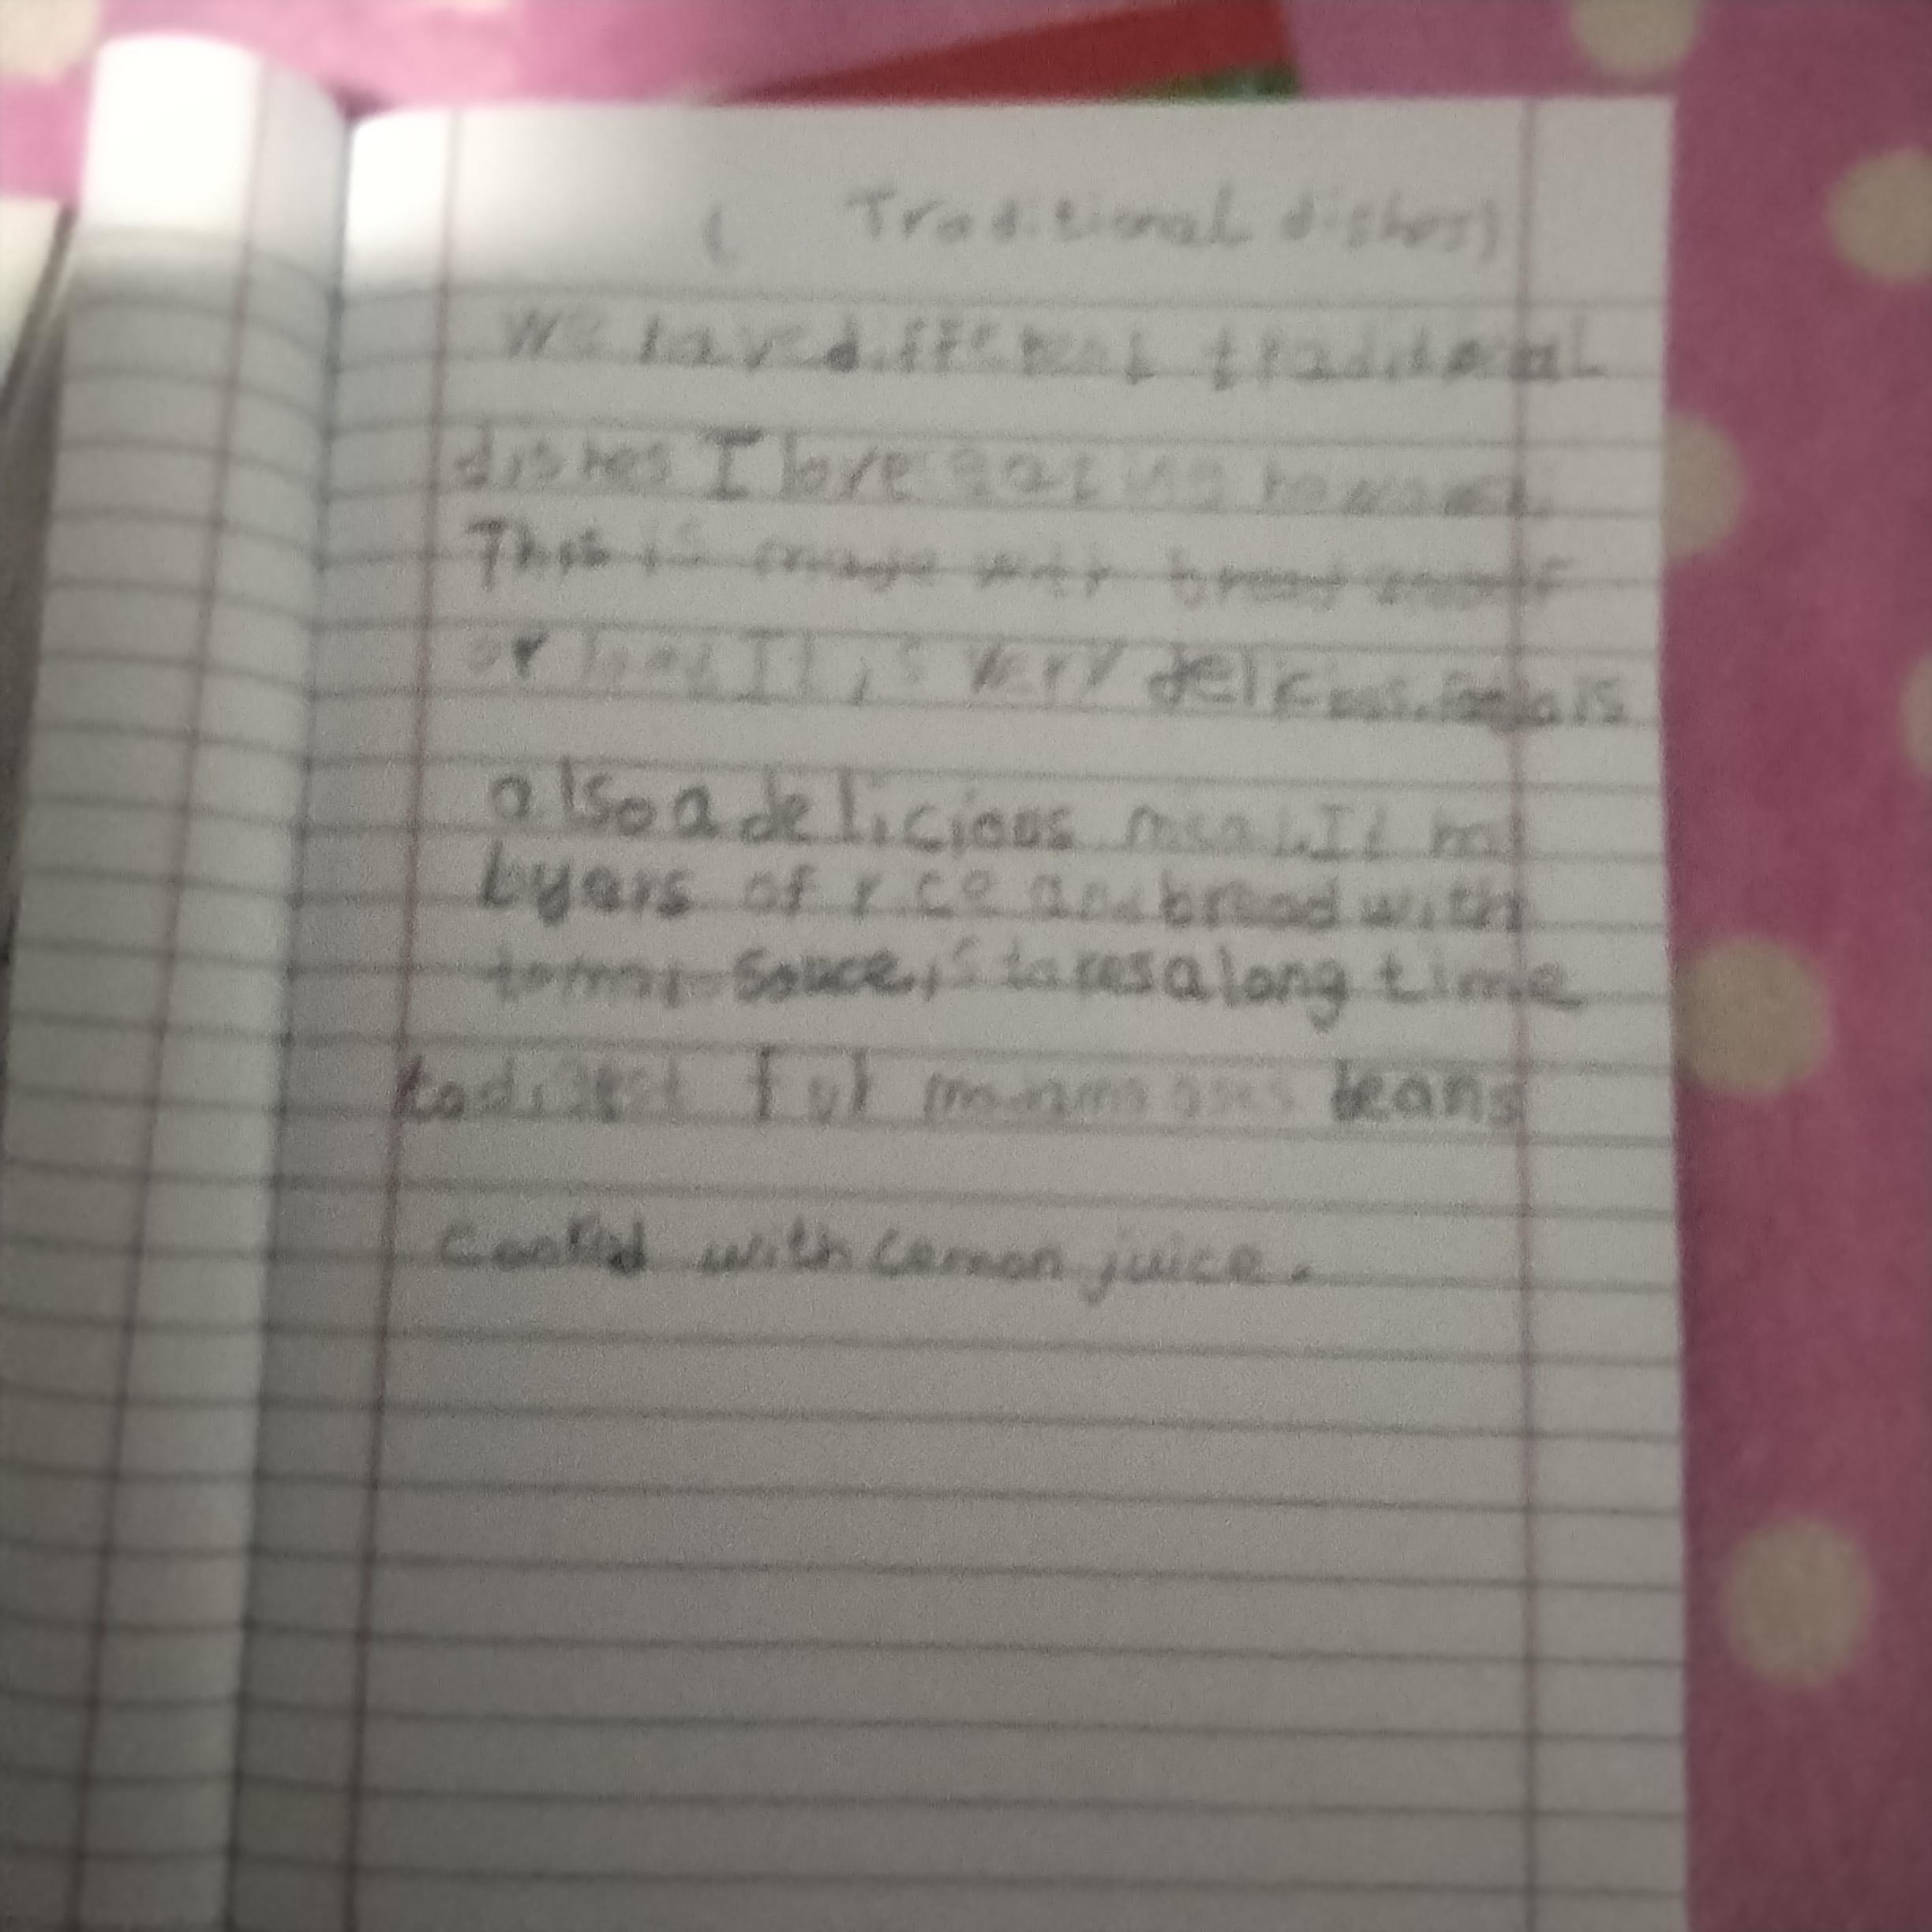 ( Traditional dishes)
We have different traditional
dishes I love eating
This is made with bread
or It is very delicious. is
also a delicious meal. It ha
layers of rice and bread with
souce, takes a long time
to digest ful beans
cooked with lemon juice.